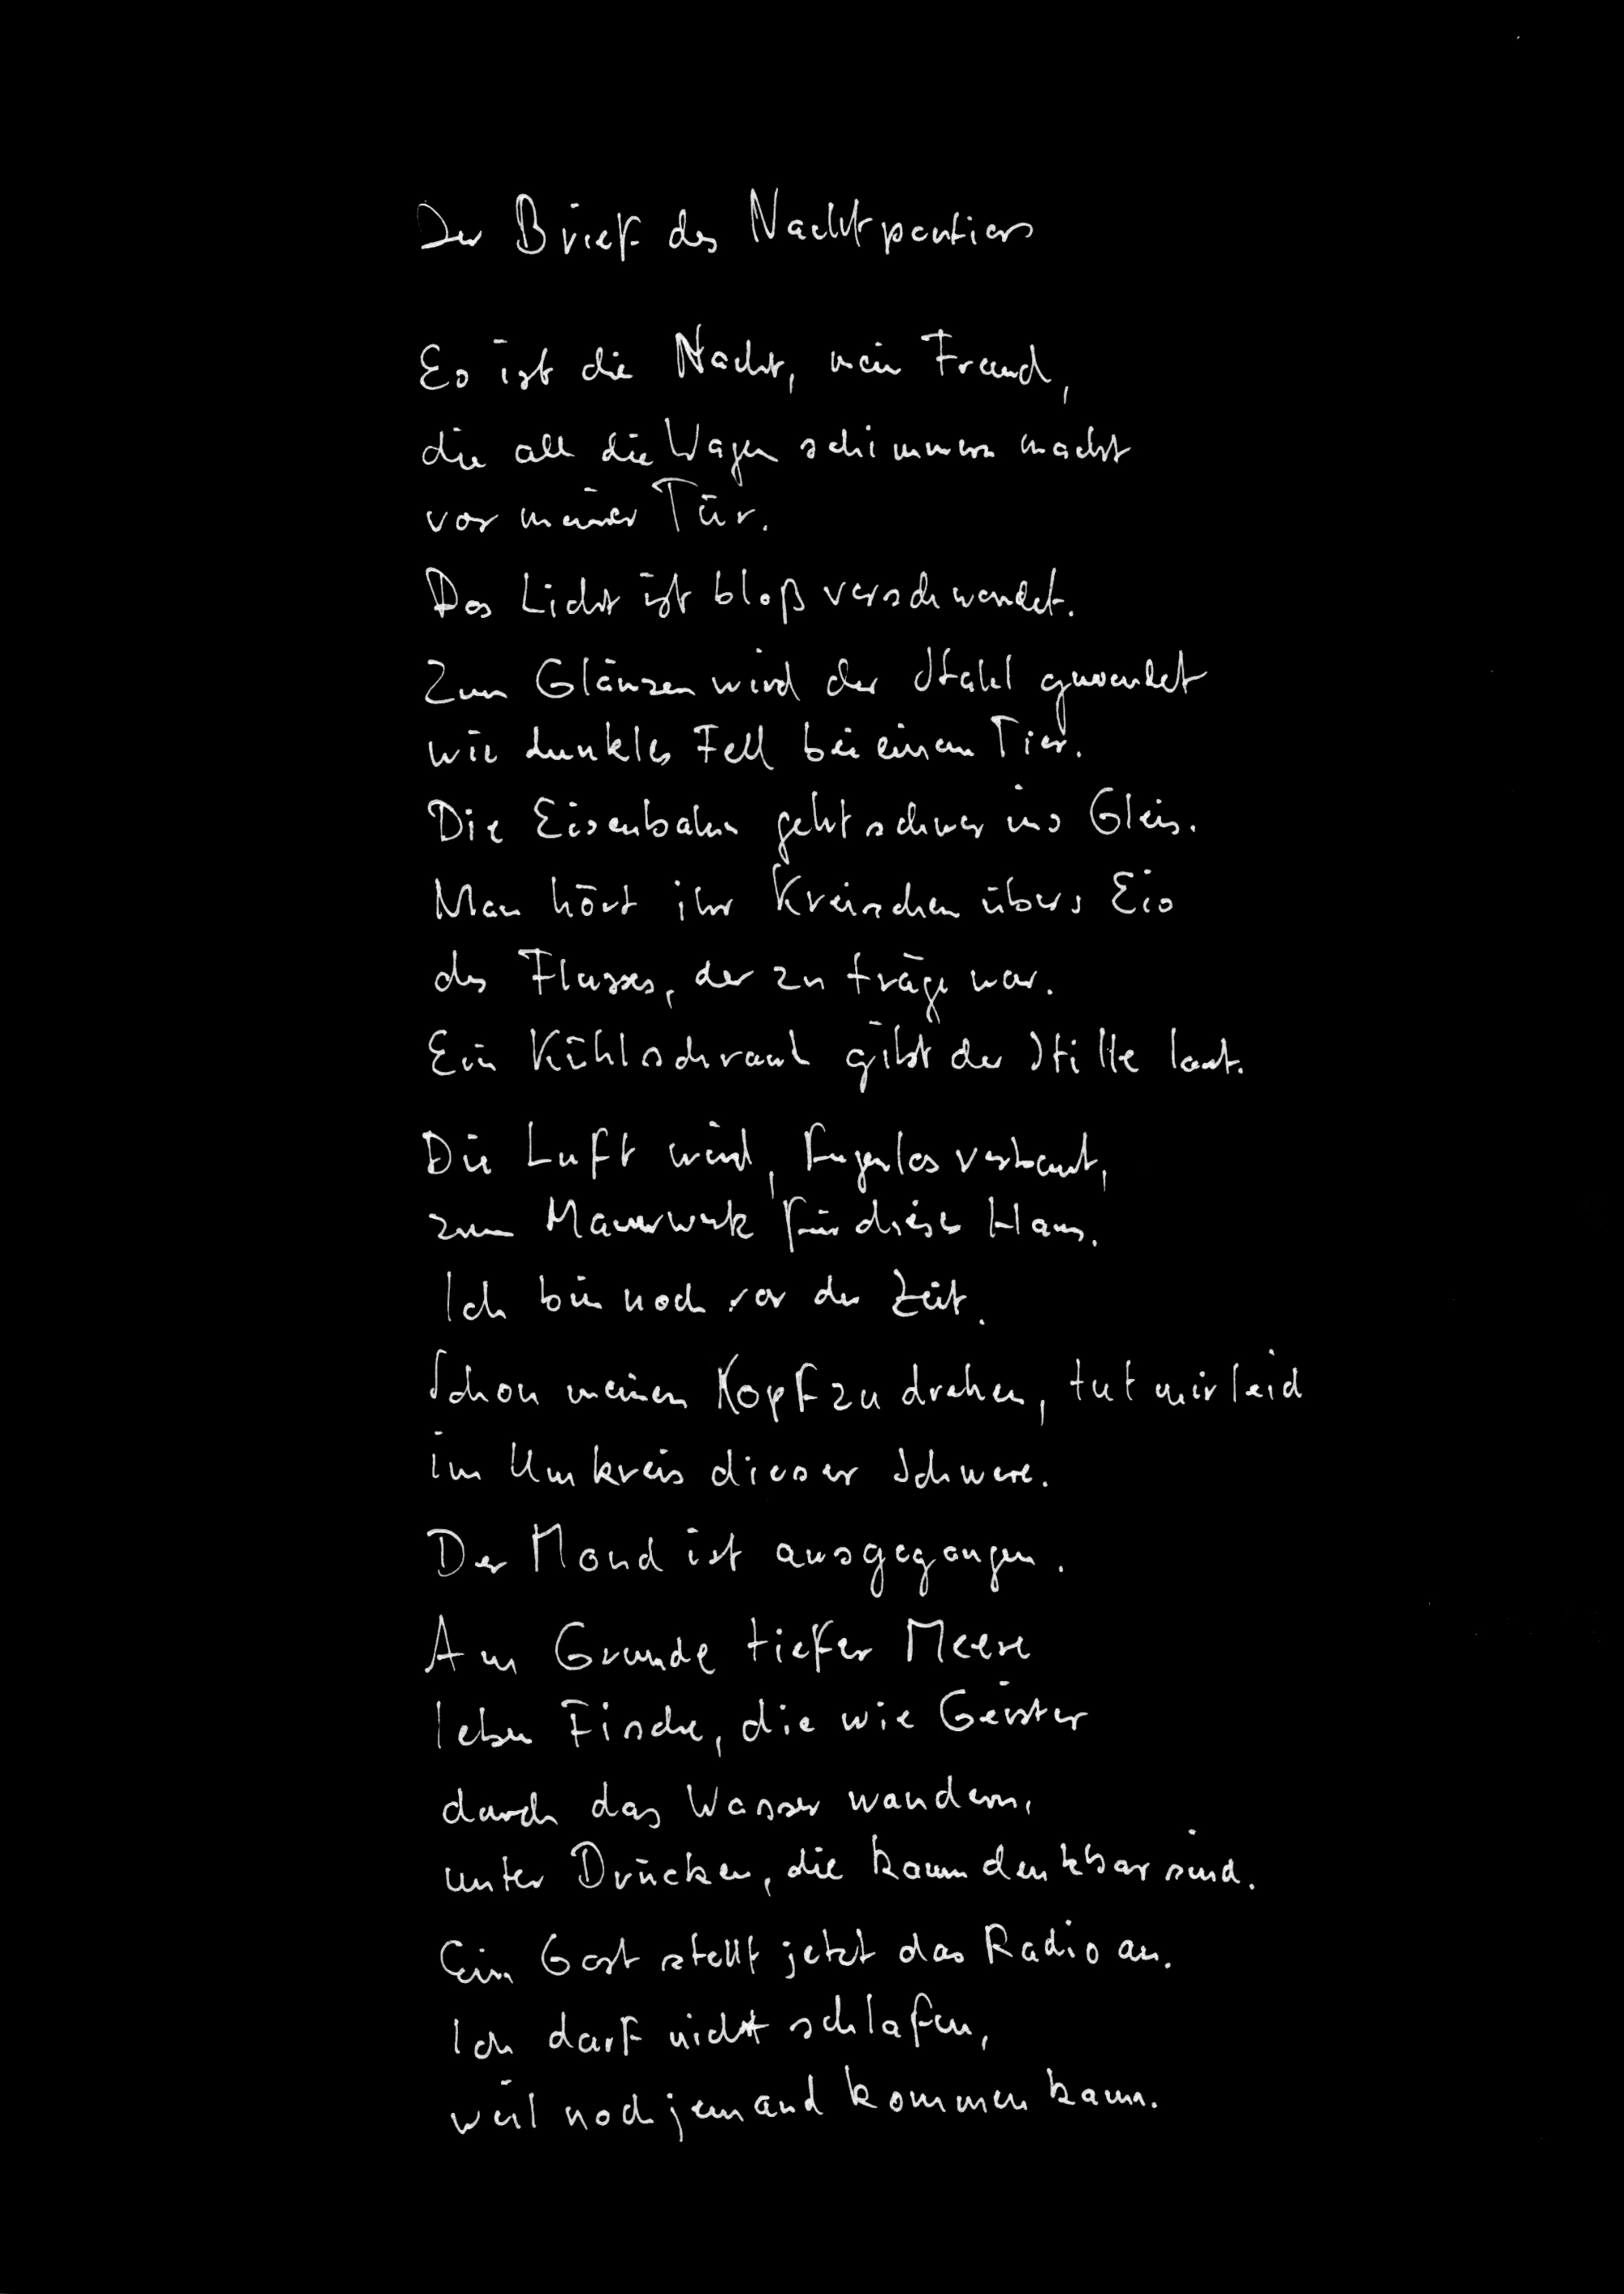 Der Brief des Nachtportiers
Es ist die Nacht, mein Freund,
die all die Wagen schimmern macht
vor meiner Tür.
Das Licht ist bloß verschwendet.
Zum Glänzen wird der Stahl gewendet
wie dunkles Fell bei einem Tier.
Die Eisenbahn geht schwer ins Gleis.
Man hört ihr Kreischen übers Eis
des Flusses, der zu träge war.
Ein Kühlschrank gibt der Stille laut.
Die Luft wird, fugenlos verbaut,
zum Mauerwerk für dieses Haus.
Ich bin noch vor der Zeit.
Schon meinen Kopf zu drehen, tut mir leid
im Umkreis dieser Schwere.
Der Mond ist ausgegangen.
Am Grunde tiefer Meere
leben Fische, die wie Geister
durch das Wasser wandern,
unter Drücken, die kaum denkbar sind.
Ein Gast stellt jetzt das Radio an.
Ich darf nicht schlafen,
weil noch jemand kommen kann.